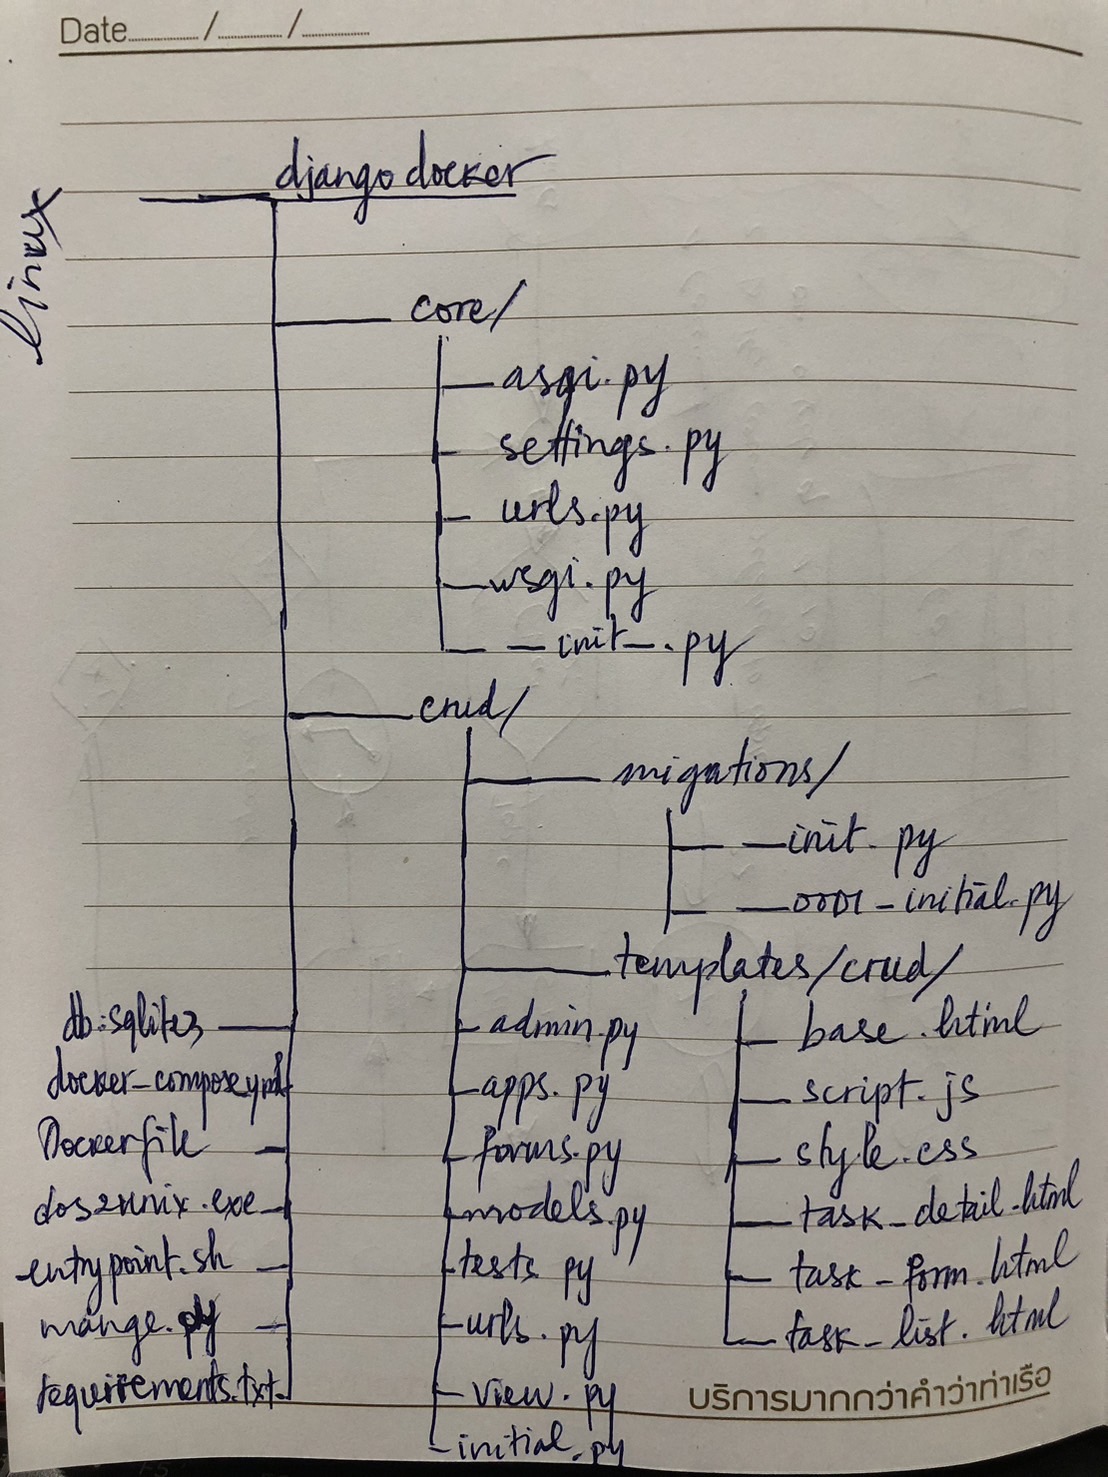 Date ......... / ......... / .........
linux
django docker
core/
asgi.py
settings.py
urls.py
wsgi.py
—init—.py
crud/
migations/
—init.py
—0001—initial.py
templates/crud/
base.html
script.js
style.css
task_detail.html
task_form.html
task_list.html
admin.py
apps.py
forms.py
models.py
tests py
urls.py
view.py
initial.py
db.sqlite3
docker-compose.yml
Dockerfile
dos2unix.exe
entrypoint.sh
mange.py
requirements.txt
บริการมากกว่าคำว่าท่าเรือ